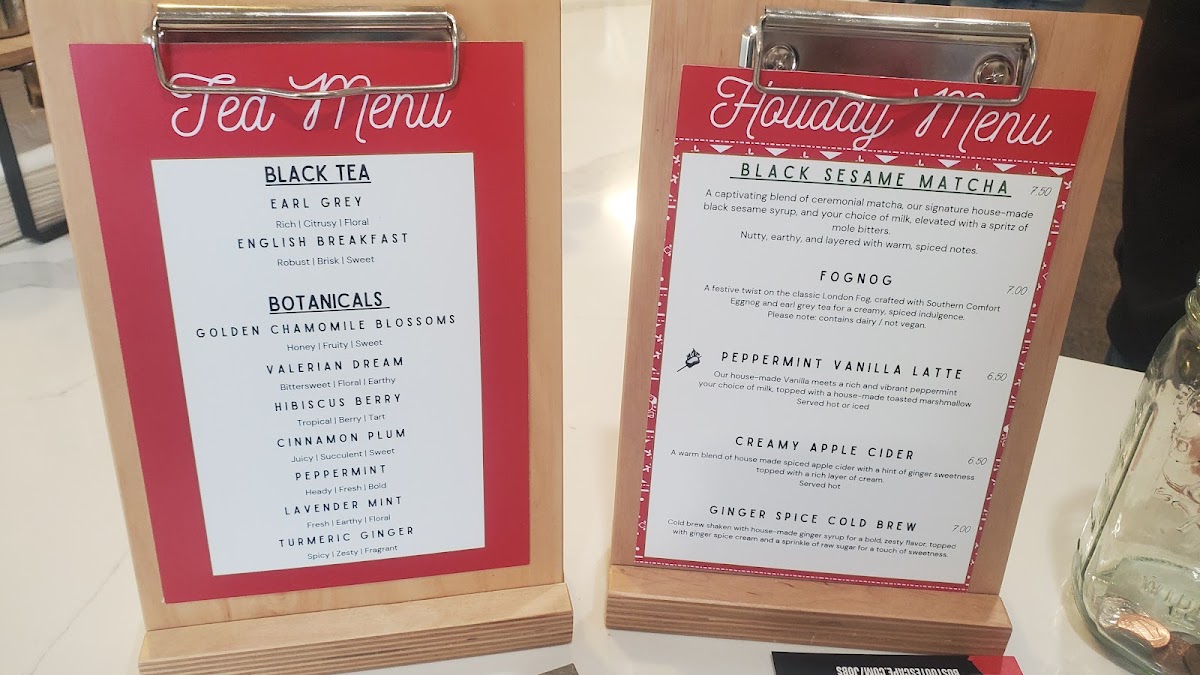 Tea Menu
BLACK TEA
EARL GREY
Rich | Citrusy | Floral
ENGLISH BREAKFAST
Robust | Brisk | Sweet
BOTANICALS
GOLDEN CHAMOMILE BLOSSOMS
Honey | Fruity | Sweet
VALERIAN DREAM
Bittersweet | Floral | Earthy
HIBISCUS BERRY
Tropical | Berry | Tart
CINNAMON PLUM
Juicy | Succulent | Sweet
PEPPERMINT
Heady | Fresh | Bold
LAVENDER MINT
Fresh | Earthy | Floral
TURMERIC GINGER
Spicy | Zesty | Fragrant
Holiday Menu
BLACK SESAME MATCHA 7.50
A captivating blend of ceremonial matcha, our signature house-made
black sesame syrup, and your choice of milk, elevated with a spritz of
mole bitters.
Nutty, earthy, and layered with warm, spiced notes.
FOGNOG 7.00
A festive twist on the classic London Fog, crafted with Southern Comfort
Eggnog and earl grey tea for a creamy, spiced indulgence.
Please note: contains dairy / not vegan.
PEPPERMINT VANILLA LATTE 6.50
Our house-made Vanilla meets a rich and vibrant peppermint
your choice of milk, topped with a house-made toasted marshmallow
Served hot or iced
CREAMY APPLE CIDER 6.50
A warm blend of house made spiced apple cider with a hint of ginger sweetness
topped with a rich layer of cream.
Served hot
GINGER SPICE COLD BREW 7.00
Cold brew shaken with house-made ginger syrup for a bold, zesty flavor, topped
with ginger spice cream and a sprinkle of raw sugar for a touch of sweetness.